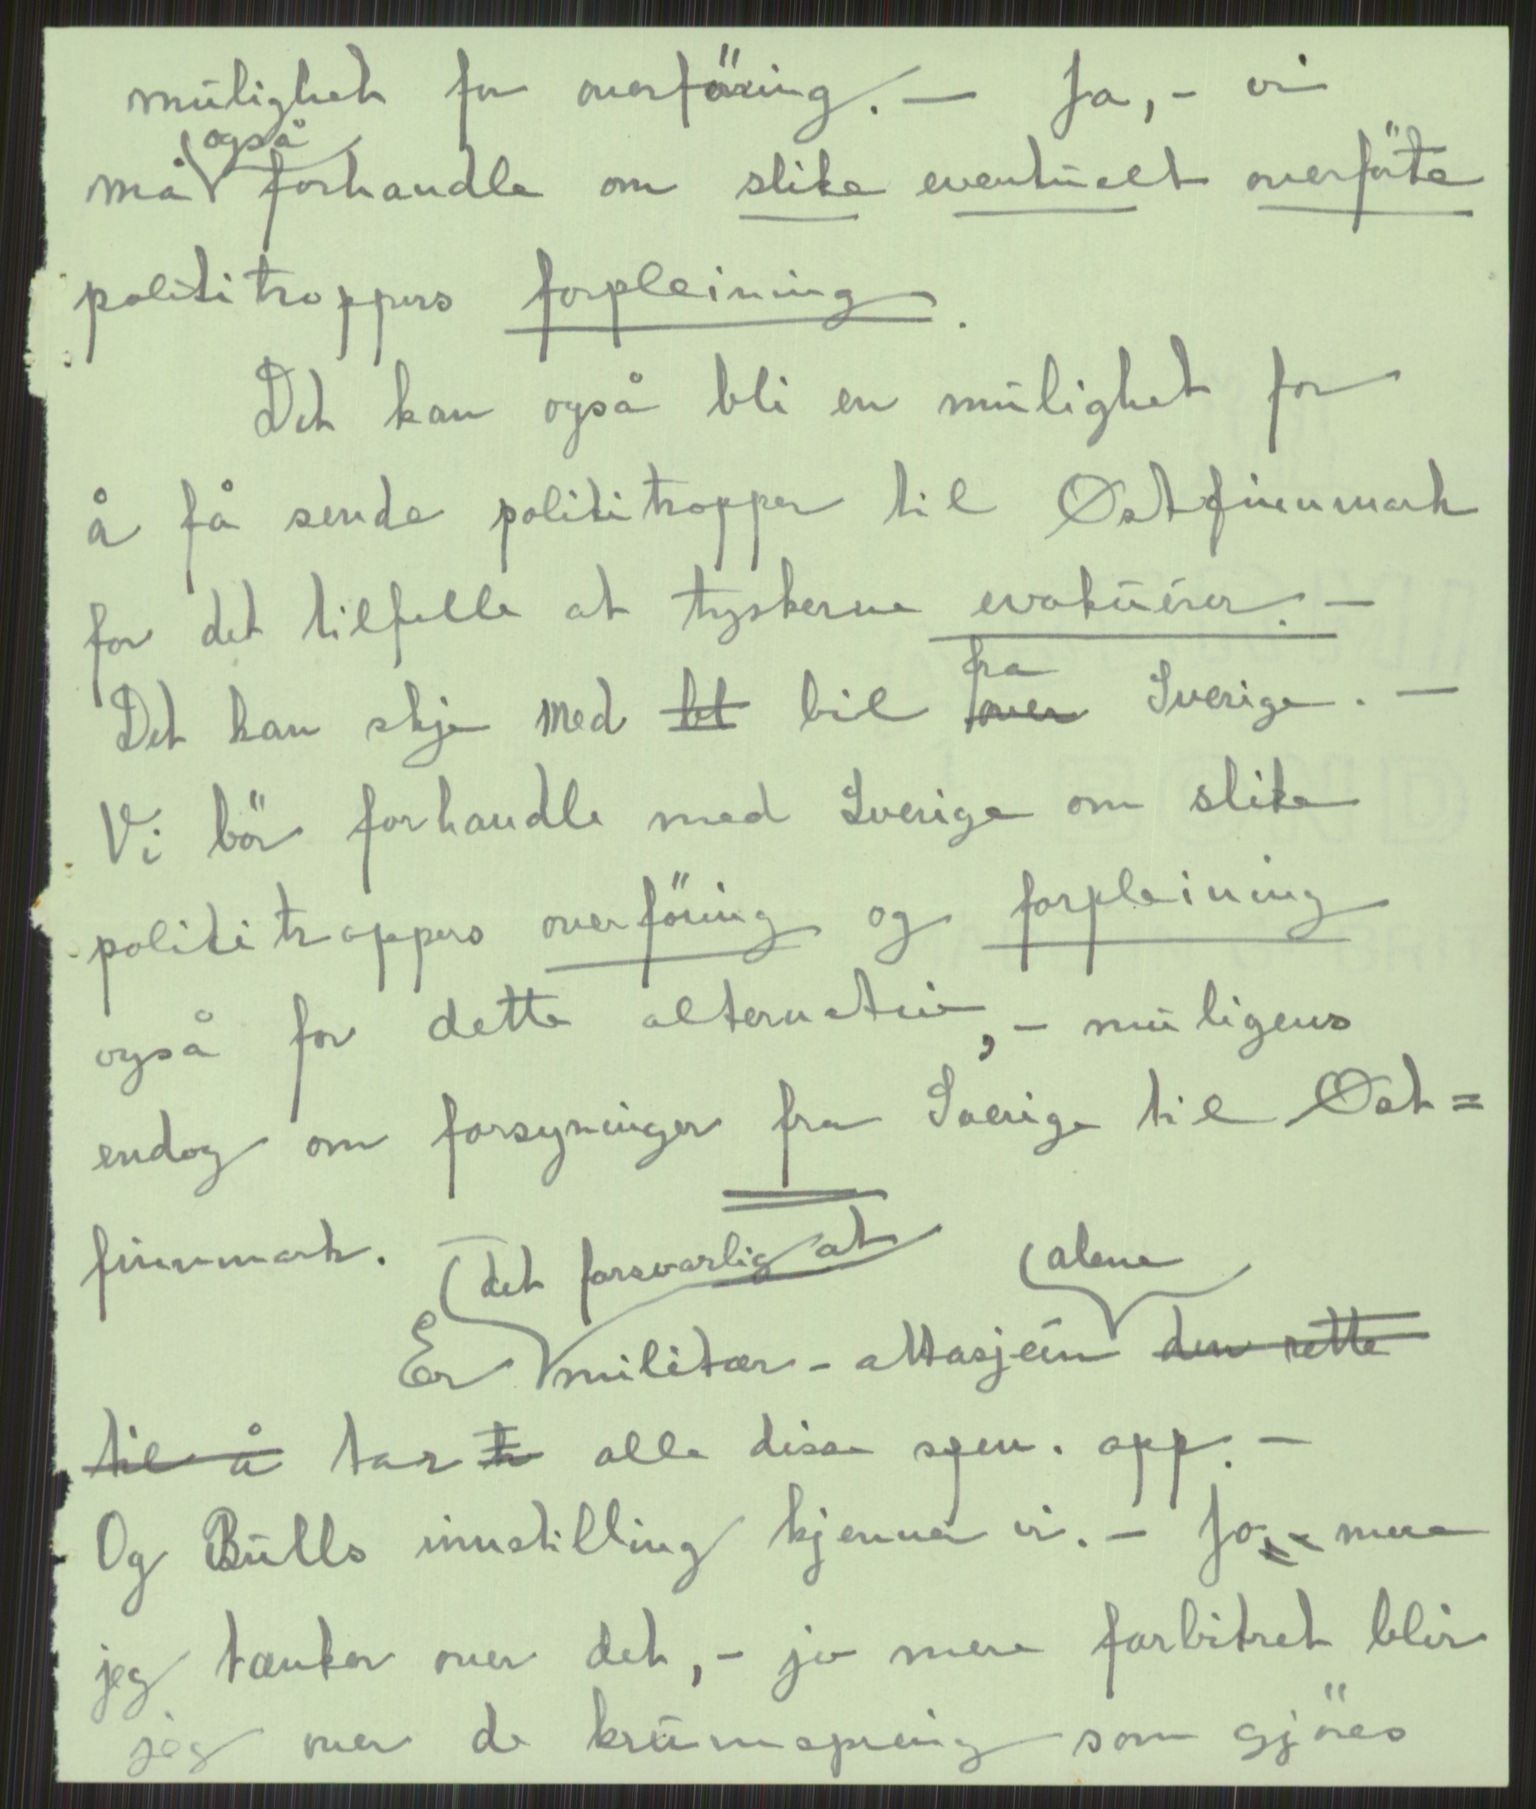 mulighet for overföring. — Ja, - vi
også
må forhandle om slike eventuelt overförte
polititroppers forpleining.
Det kan også bli en mulighet for
å få sende polititropper til Østfinnmark
for det tilfelle at tyskerne evakuérer. —
fra
Det kan skje med bil over Sverige. —
Vi bör forhandle med Sverige om slike
polititroppers overföring og forpleining
også for dette alternativ, - muligens
endog om forsyninger fra Sverige til Øst=
finnmark.
det forsvarlig at
alene
Er militær - attasjéen den rette
til å tar alle disse spm. opp. —
Og Bulls innstilling kjenner vi. — Jo mere
jeg tænker over det, - jo mere forbitret blir
jeg over de krumspring som gjöres